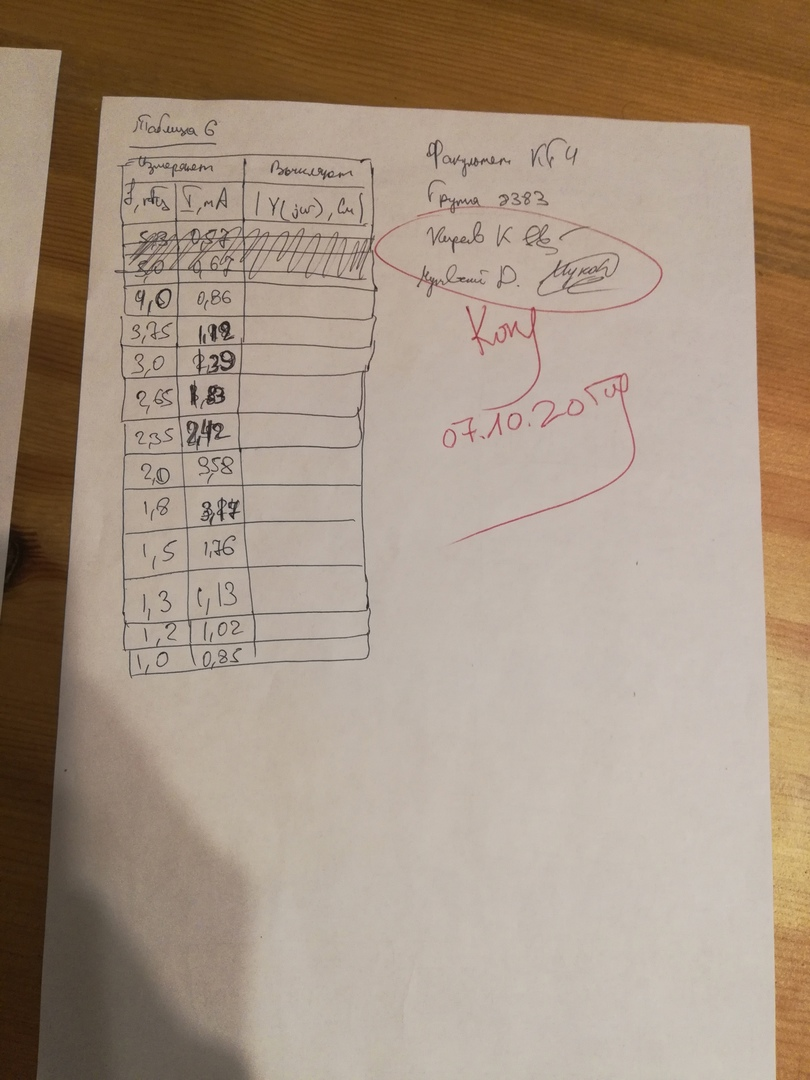 Таблица 6
Измеряют Вычисляют
f, кГц I, мА |Y(jw)|, См
5,0 0,67
4,0 0,86
3,75 1,12
3,0 1,39
2,65 1,83
2,35 2,42
2,0 3,58
1,8 3,77
1,5 1,76
1,3 1,13
1,2 1,02
1,0 0,85
Факультет
Группа 2383
К
Д.
07.10.20